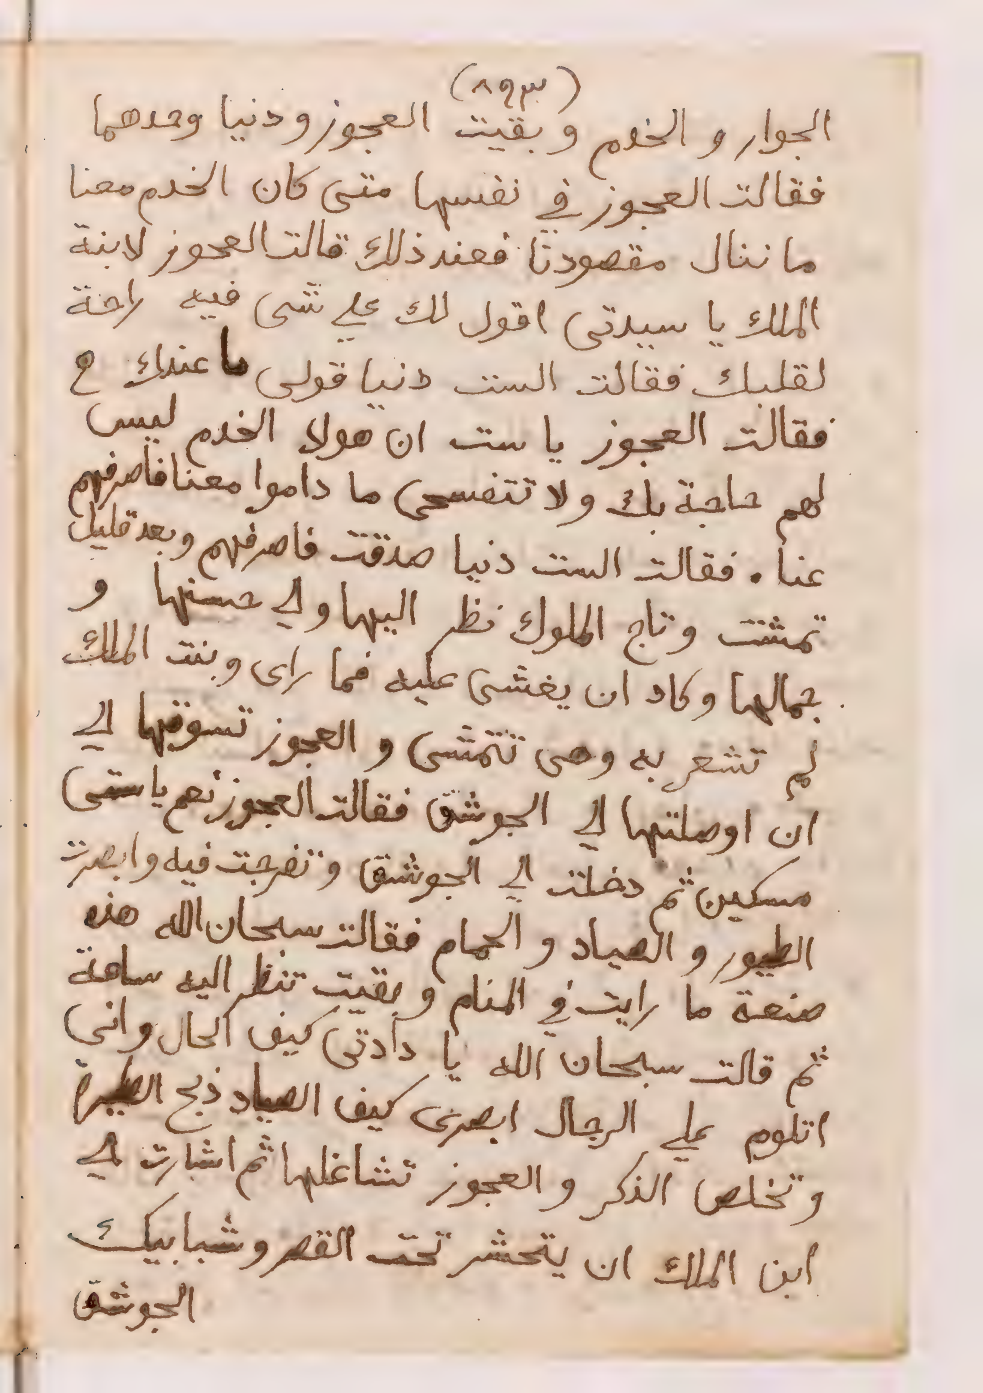 (٨٩٣)
الجوار و الخدم و بقيت العجوز و دنيا وحدهما
فقالت العجوز في نفسها متى كان الخدم معنا
ما ننال مقصودنا فعند ذلك قالت العجوز لابنة
الملك يا سيدتى اقول لك علي شى فيه راحة
لقلبك فقالت الست دنيا قولى ما عندك
فقالت العجوز يا ست ان هولا الخدم ليس
لهم حاجة بك ولا تتفسحى ما داموا معنا فاصرفهم
عنا . فقالت الست دنيا صدقت فاصرفهم وبعد قليل
تمشت و تاج الملوك نظر اليها والي حسنها و
جمالها وكاد ان يغشى عليه فما راى وبنت الملك
لم تشعر به وهى تتمشى و العجوز تسوقها الي
ان اوصلتها الي الجوشق فقالت العجوز نعم يا ستى
مسكين ثم دخلت الي الجوشق و تفرجت فيه وابصرت
الطيور و الصياد و الحمام فقالت سبحان الله هذه
صنعة ما رايت في المنام و بقيت تنظر اليه ساعة
ثم قالت سبحان الله يا دادتى كيف الحال وانى
اتلوم علي الرجال ابصرى كيف الصياد ذبح الطيرة
و تخلص الذكر و العجوز تشاغلها ثم اشارت الي
ابن الملك ان يتحشر تحت القصر و شبابيك
الجوشق